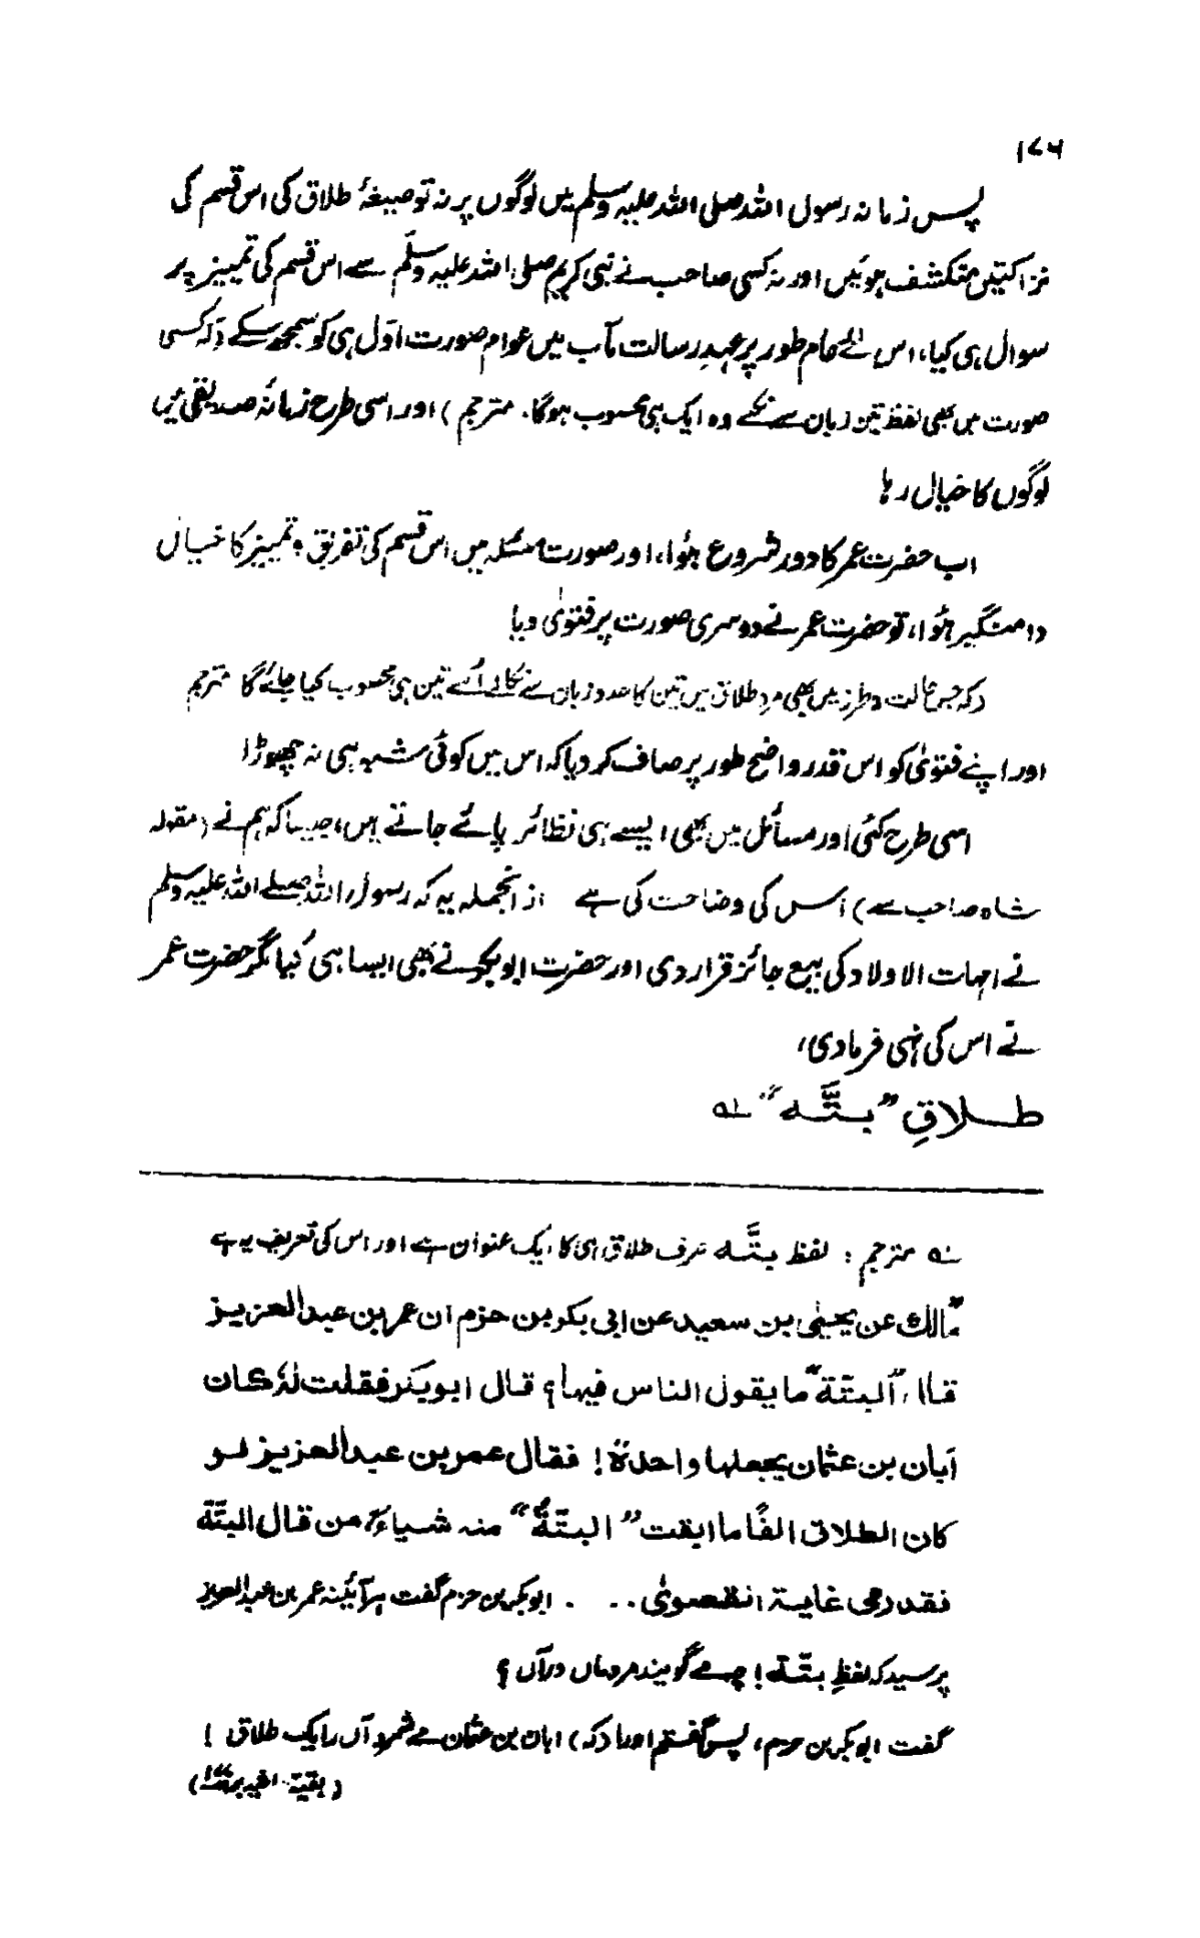 ۱۷۶
پس زمانہ رسول اللہ صلی اللہ علیہ وسلم میں لوگوں پر نہ تو صیغۂ طلاق کی اس قسم کی
نزاکتیں منکشف ہوئیں اور نہ کسی صاحب نے نبی کریم صلی اللہ علیہ وسلم سے اس قسم کی تمییز پر
سوال ہی کیا، اس لئے عام طور پر عہدِ رسالت مآب میں عوام صورت اوّل ہی کو سمجھ سکے (کہ کسی
صورت میں بھی لفظ تین زبان سے نکلے وہ ایک ہی محسوب ہوگا۔ مترجم) اور اسی طرح زمانۂ صدیقی میں
لوگوں کا خیال رہا
اب حضرت عمر کا دور شروع ہؤا، اور صورت مسئلہ میں اس قسم کی تفریق و تمییز کا خیال
دامنگیر ہؤا، تو حضرت عمر نے دوسری صورت پر فتویٰ دیا
(کہ جس حالت و طرز میں بھی مرد طلاق میں تین کا عدد زبان سے نکالے اُسے تین ہی محسوب کیا جائے گا مترجم
اور اپنے فتویٰ کو اس قدر واضح طور پر صاف کر دیا کہ اس میں کوئی شبہ ہی نہ چھوڑا
اسی طرح کئی اور مسائل میں بھی ایسے ہی نظائر پائے جاتے ہیں، جیسا کہ ہم نے (مقولہ
شاہ صاحب ہے) اس کی وضاحت کی ہے ازانجملہ یہ کہ رسول اللہ صلے اللہ علیہ وسلم
نے امہات الاولاد کی بیع جائز قرار دی اور حضرت ابوبکر نے بھی ایسا ہی کیا مگر حضرت عمر
نے اس کی نہی فرما دی،
طلاقِ "بتَّہ" لہ
لہ مترجم : لفظ بتَّہ صرف طلاق ہی کا ایک عنوان ہے اور اس کی تعریف یہ ہے
"مالك عن يحيىٰ بن سعيد عن ابى بكر بن حزم ان عمر بن عبد العزيز
قال، "البتّة" ما يقول الناس فيها؟ قال ابو بكر فقلت لهٗ كان
أبان بن عثمان يجعلها واحدةً! فقال عمر بن عبد العزيز لو
كان الطلاق الفًا ما ابقت "البتّةُ" منه شياء، من قال البتّة
فقد رمى غاية القصوىٰ . . . ابوبکر بن حزم گفت ہر آئینہ عمر بن عبد العزیز
پرسید کہ لفظِ بتّتہ! چہ مے گویند مردماں درآں ؟
گفت ابوبکر بن حزم، پس گفتم اورا (کہ) ابان بن عثمان مے شمرد آں را یک طلاق !